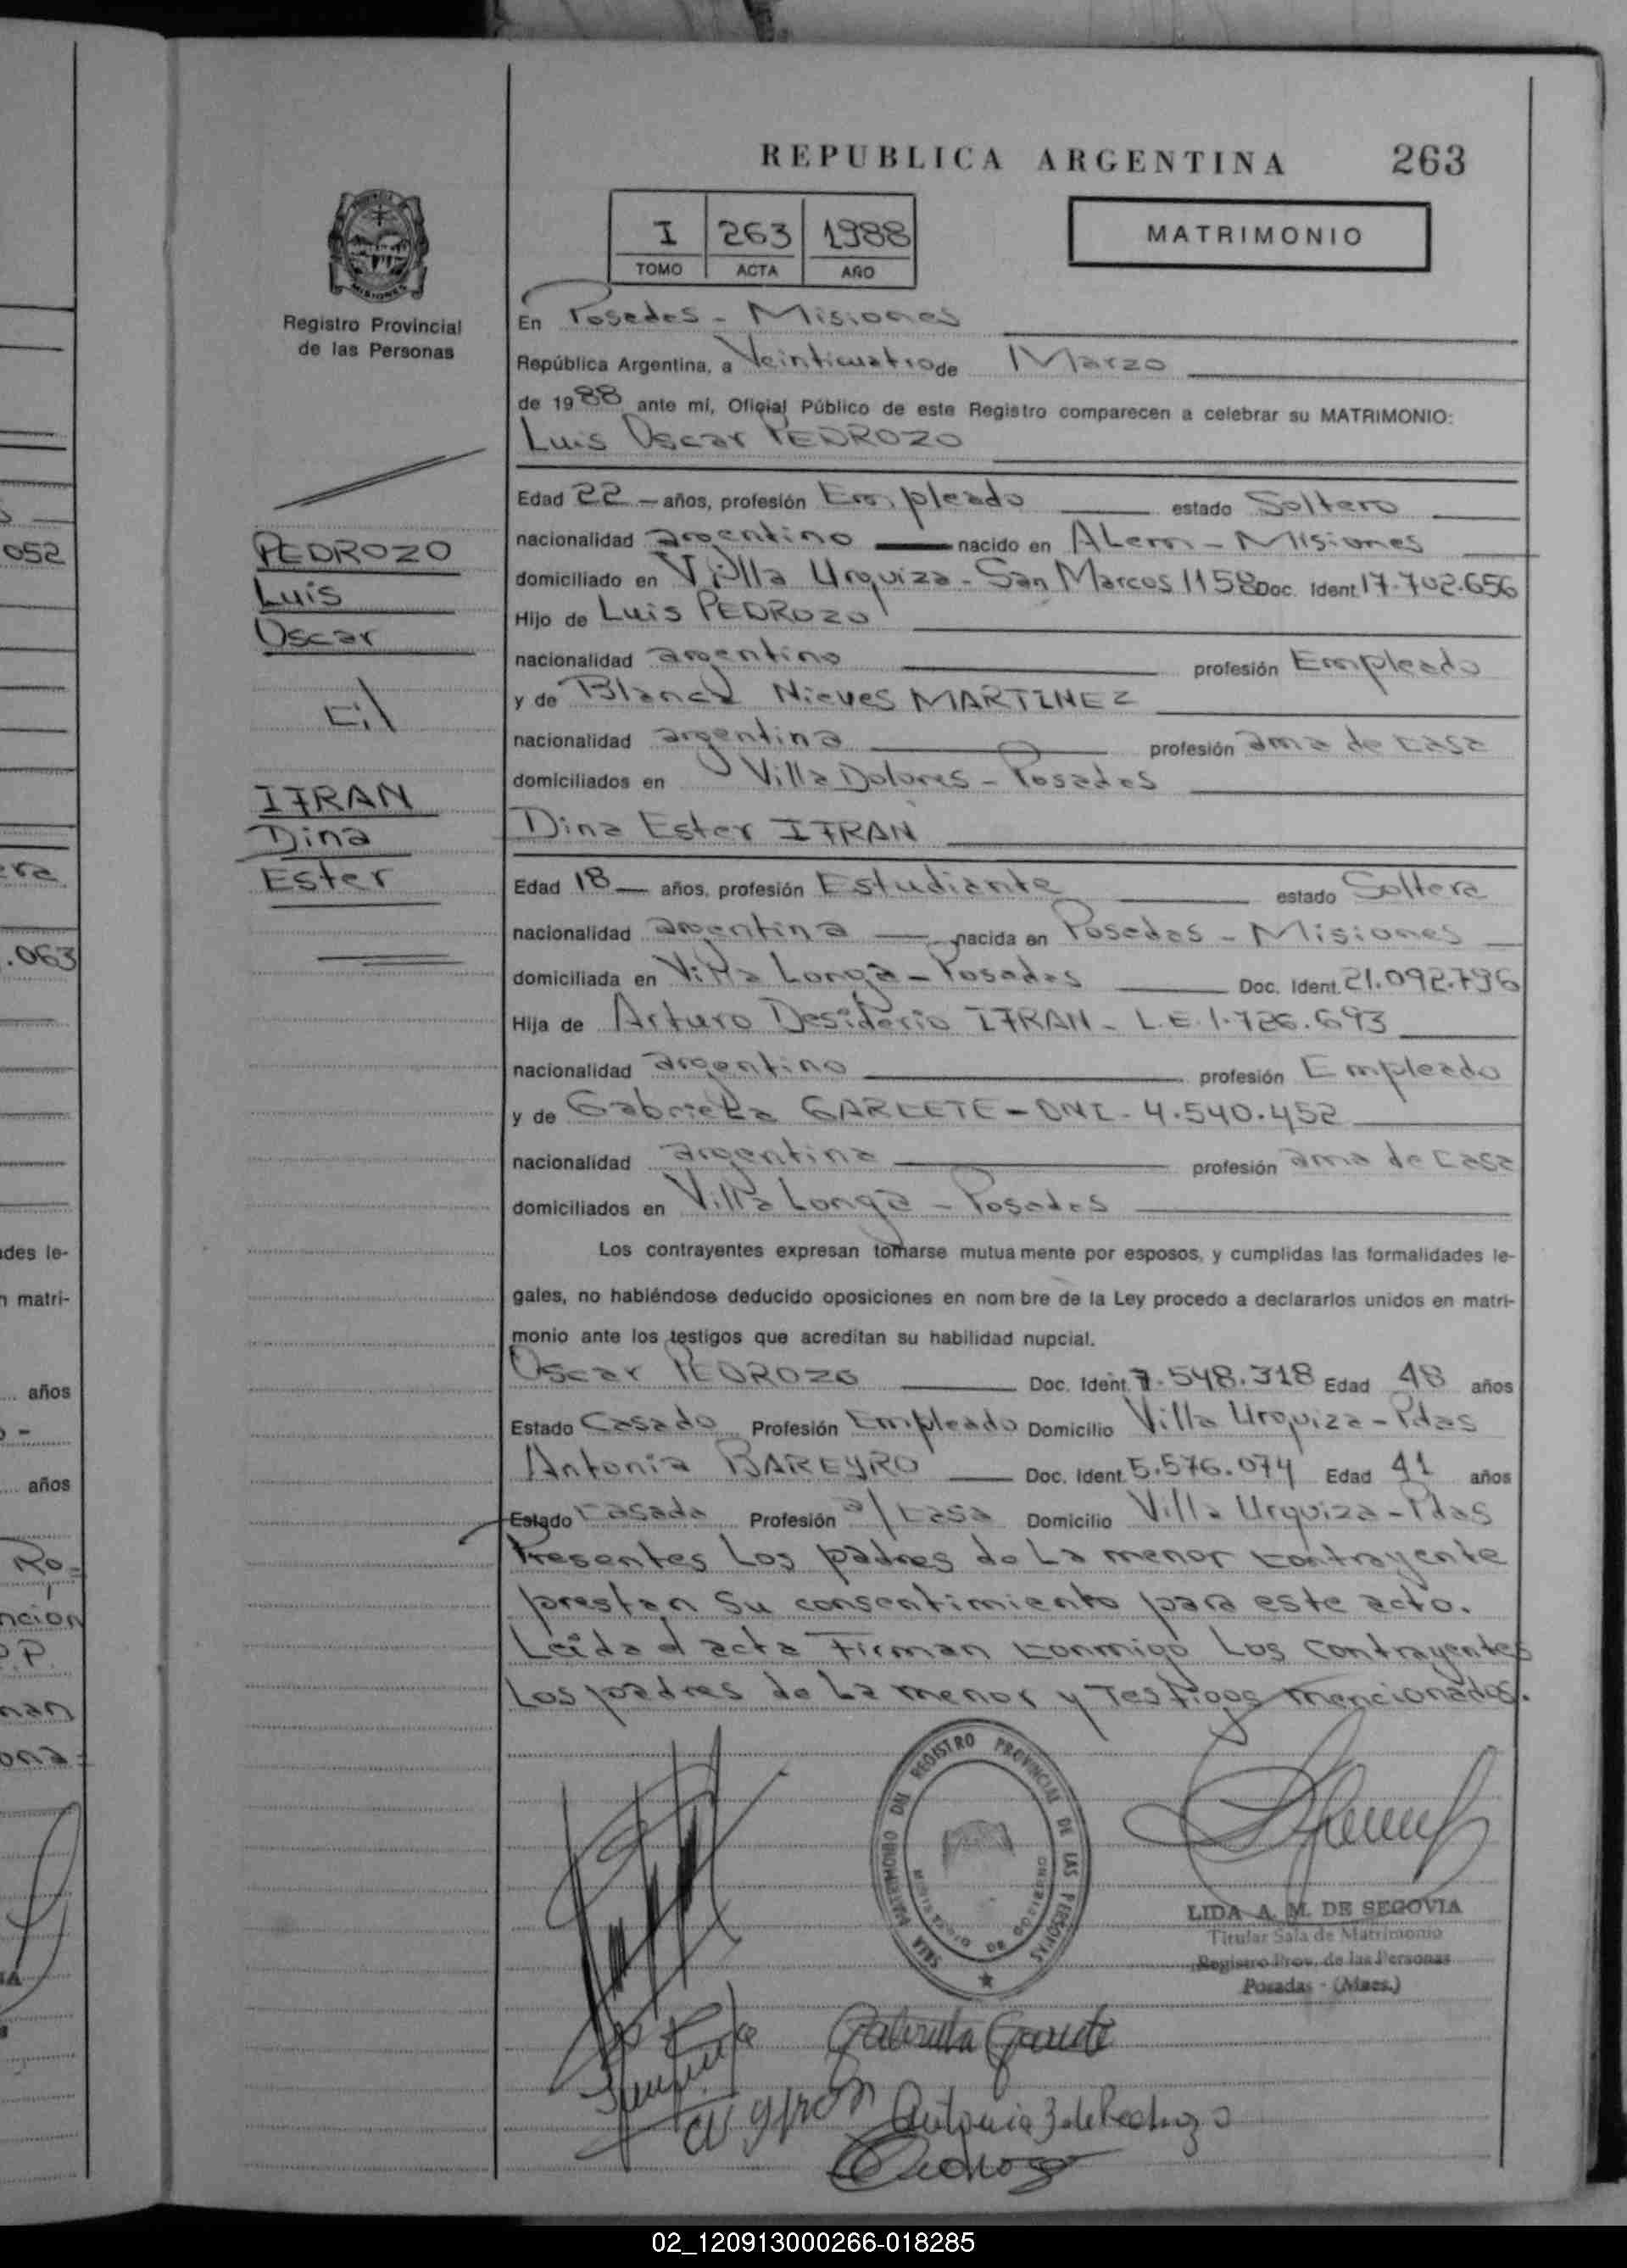 REPUBLICA ARGENTINA 263
I 263 1988
TOMO ACTA AÑO
MATRIMONIO
MISIONES
Registro Provincial
de las Personas
En Posadas - Misiones
República Argentina, a Veinticuatro de Marzo
de 1988 ante mí, Oficial Público de este Registro comparecen a celebrar su MATRIMONIO:
Luis Oscar PEDROZO
Edad 22 - años, profesión Empleado estado Soltero
nacionalidad argentino nacido en ALem - Misiones
domiciliado en Villa Urquiza - San Marcos 1158 Doc. Ident. 17.702.656
Hijo de Luis PEDROZO
nacionalidad argentino profesión Empleado
y de Blanca Nieves MARTINEZ
nacionalidad argentina profesión ama de casa
domiciliados en Villa Dolores - Posadas
Dina Ester IFRAN
Edad 18 años, profesión Estudiante estado Soltera
nacionalidad argentina nacida en Posadas - Misiones
domiciliada en Villa Longa - Posadas Doc. Ident. 21.092.796
Hija de Arturo Desiderio IFRAN - L.E. 1.726.693
nacionalidad argentino profesión Empleado
y de Gabriela GARCETE - DNI - 4.540.452
nacionalidad argentina profesión ama de casa
domiciliados en Villa Longa - Posadas
Los contrayentes expresan tomarse mutua mente por esposos, y cumplidas las formalidades le-
gales, no habiéndose deducido oposiciones en nom bre de la Ley procedo a declararlos unidos en matri-
monio ante los testigos que acreditan su habilidad nupcial.
Oscar PEDROZO Doc. Ident. 7.548.318 Edad 48 años
Estado Casado Profesión Empleado Domicilio Villa Urquiza - Pdas
Antonia BAREYRO Doc. Ident. 5.576.074 Edad 41 años
Estado casada Profesión a/casa Domicilio Villa Urquiza - Pdas
Presentes Los padres de La menor contrayente
prestan su consentimiento para este acto.
Leída el acta Firman conmigo Los contrayentes
Los padres de La menor y Testigos mencionados.
PEDROZO
Luis
Oscar
c/
IFRAN
Dina
Ester
SALA MATRIMONIO DEL REGISTRO PROVINCIAL DE LAS PERSONAS
MINISTERIO DE GOBIERNO
LIDA A. M. DE SEGOVIA
Titular Sala de Matrimonio
Registro Prov. de las Personas
Posadas - (Mnes.)
Gabriela Garcete
Antonia B de Pedrozo
Pedrozo
052
era
.063
ades le-
n matri-
años
años
Ro=
nción
P.P.
man
ona=
02_120913000266-018285